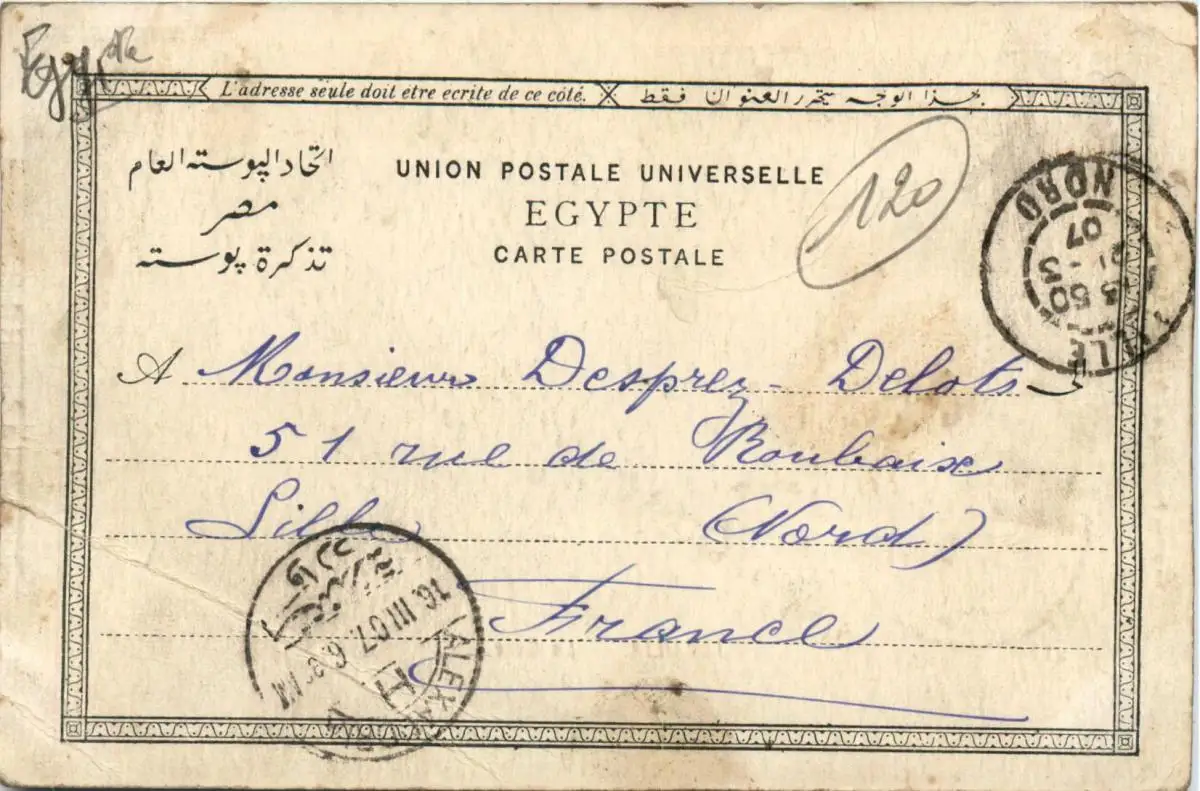 Egypte
L'adresse seule doit être ecrite de ce côté.
بهذا الوجه يتحرر العنوان فقط
اتحاد البوسته العام
مصر
تذكرة بوسته
UNION POSTALE UNIVERSELLE
EGYPTE
CARTE POSTALE
120
LILLE
13 50
21 - 3
07
NORD
A Monsieur Desprez-Delots الى
51 rue de Roubaix
Lille (Nord)
France
16.III.07. 6